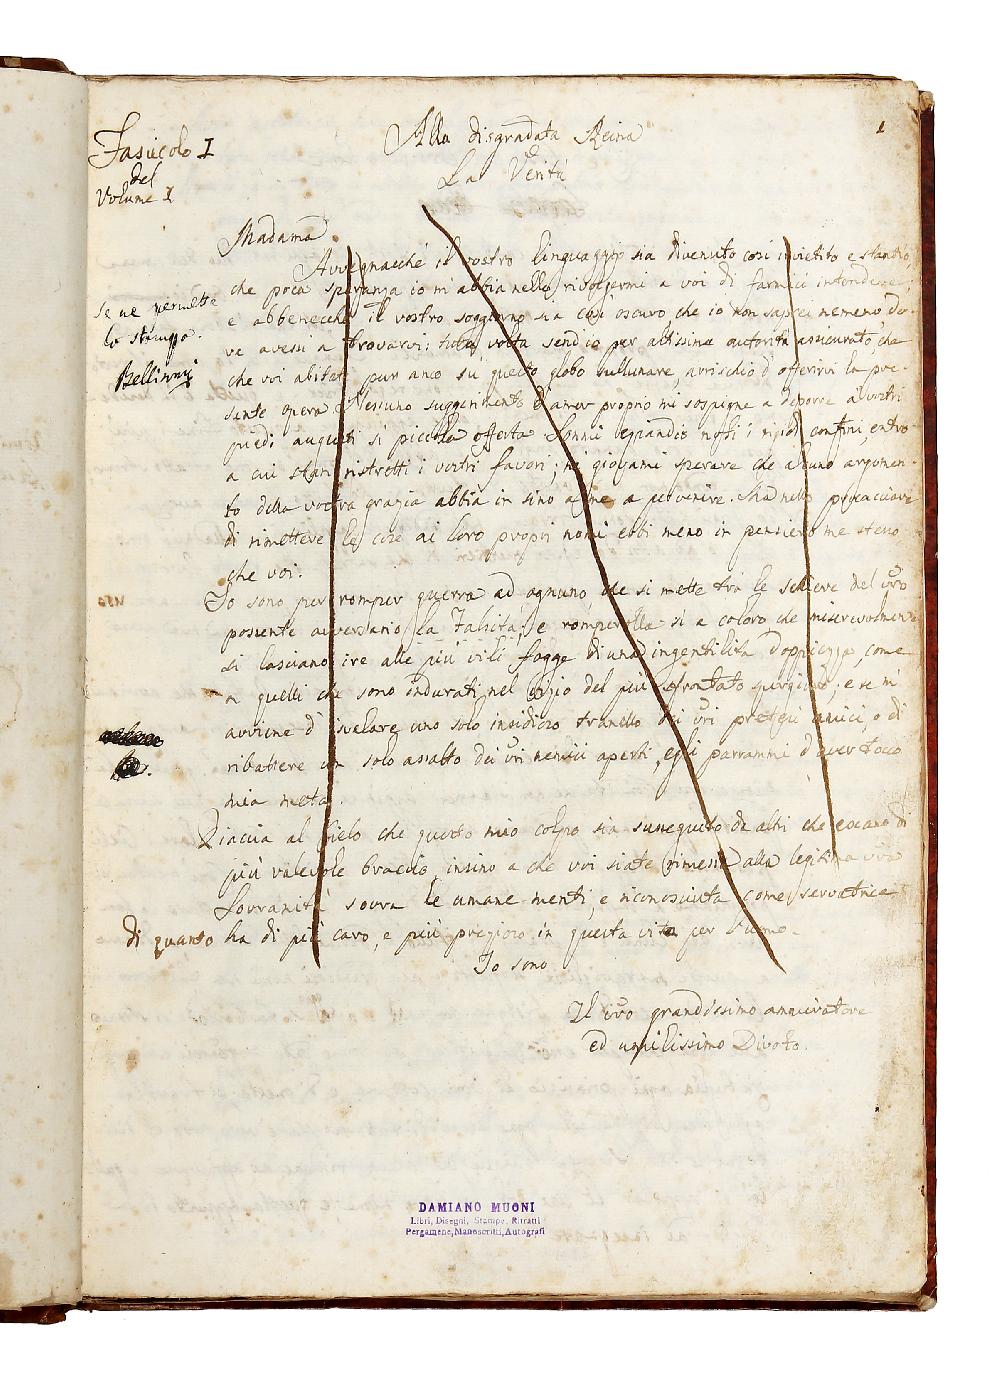 1
Fasicolo I
del
Volume I
Alla disgradata Reina
La Verità
Madama
Avvegnacché il vostro linguaggio sia divenuto così invietito e stantio,
che poca speranza io m'abbia nello rivolgermi a voi di farmivi intendere;
e abbenecché il vostro soggiorno sia così oscuro che io non saprei nemeno, do-
ve avessi a trovarvi; tutta volta sendio per altissima autorità assicurato, che
che voi abitate pur anco su questo globo sullunare, arrischio d'offerirvi la pre-
sente opera. Nessuno suggerimento d'amor proprio mi sospigne a deporre a' vostri
piedi augusti sì piccola offerta. Sonmi eziandio noti i rigidi confini, entro
a cui stan ristretti i vostri favori; né giovami sperare che alcuno argomen-
to della vostra grazia abbia in sino a me a pervenire. Ma nello procacciare
di rimettere le cose ai loro propri nomi ebbi meno in pensiero me stesso
che voi.
Io sono per romper guerra ad ognuno che si mette tra le schiere del vro
possente avversario la Falsità; e romperolla sì a coloro che miserevolmente
si lasciano ire alle più vili fogge di una ingentilita doppiezza, come
a quelli che sono indurati nel vizio del più sfrontato spergiuro; e se m'
avviene d'isvelare uno solo insidioso tranello dei vri pretesi amici, o di
ribattere un solo assalto dei vri nemici aperti, egli parrammi d'aver tocco
mia meta.
Piaccia al Cielo che questo mio colpo sia susseguito da altri che escano di
più valevole braccio, insino a che voi siate rimessa alla legitima vra
Sovranità sovra le umane menti, e riconosciuta come servatrice
di quanto ha di più caro, e più pregioso in questa vita per l'uomo.
Io sono
Il vro grandissimo ammiratore
ed umilissimo Divoto.
Se ne permette
la stampa.
Bellisomi
DAMIANO MUONI
Libri, Disegni, Stampe, Ritratti
Pergamene, Manoscritti, Autografi